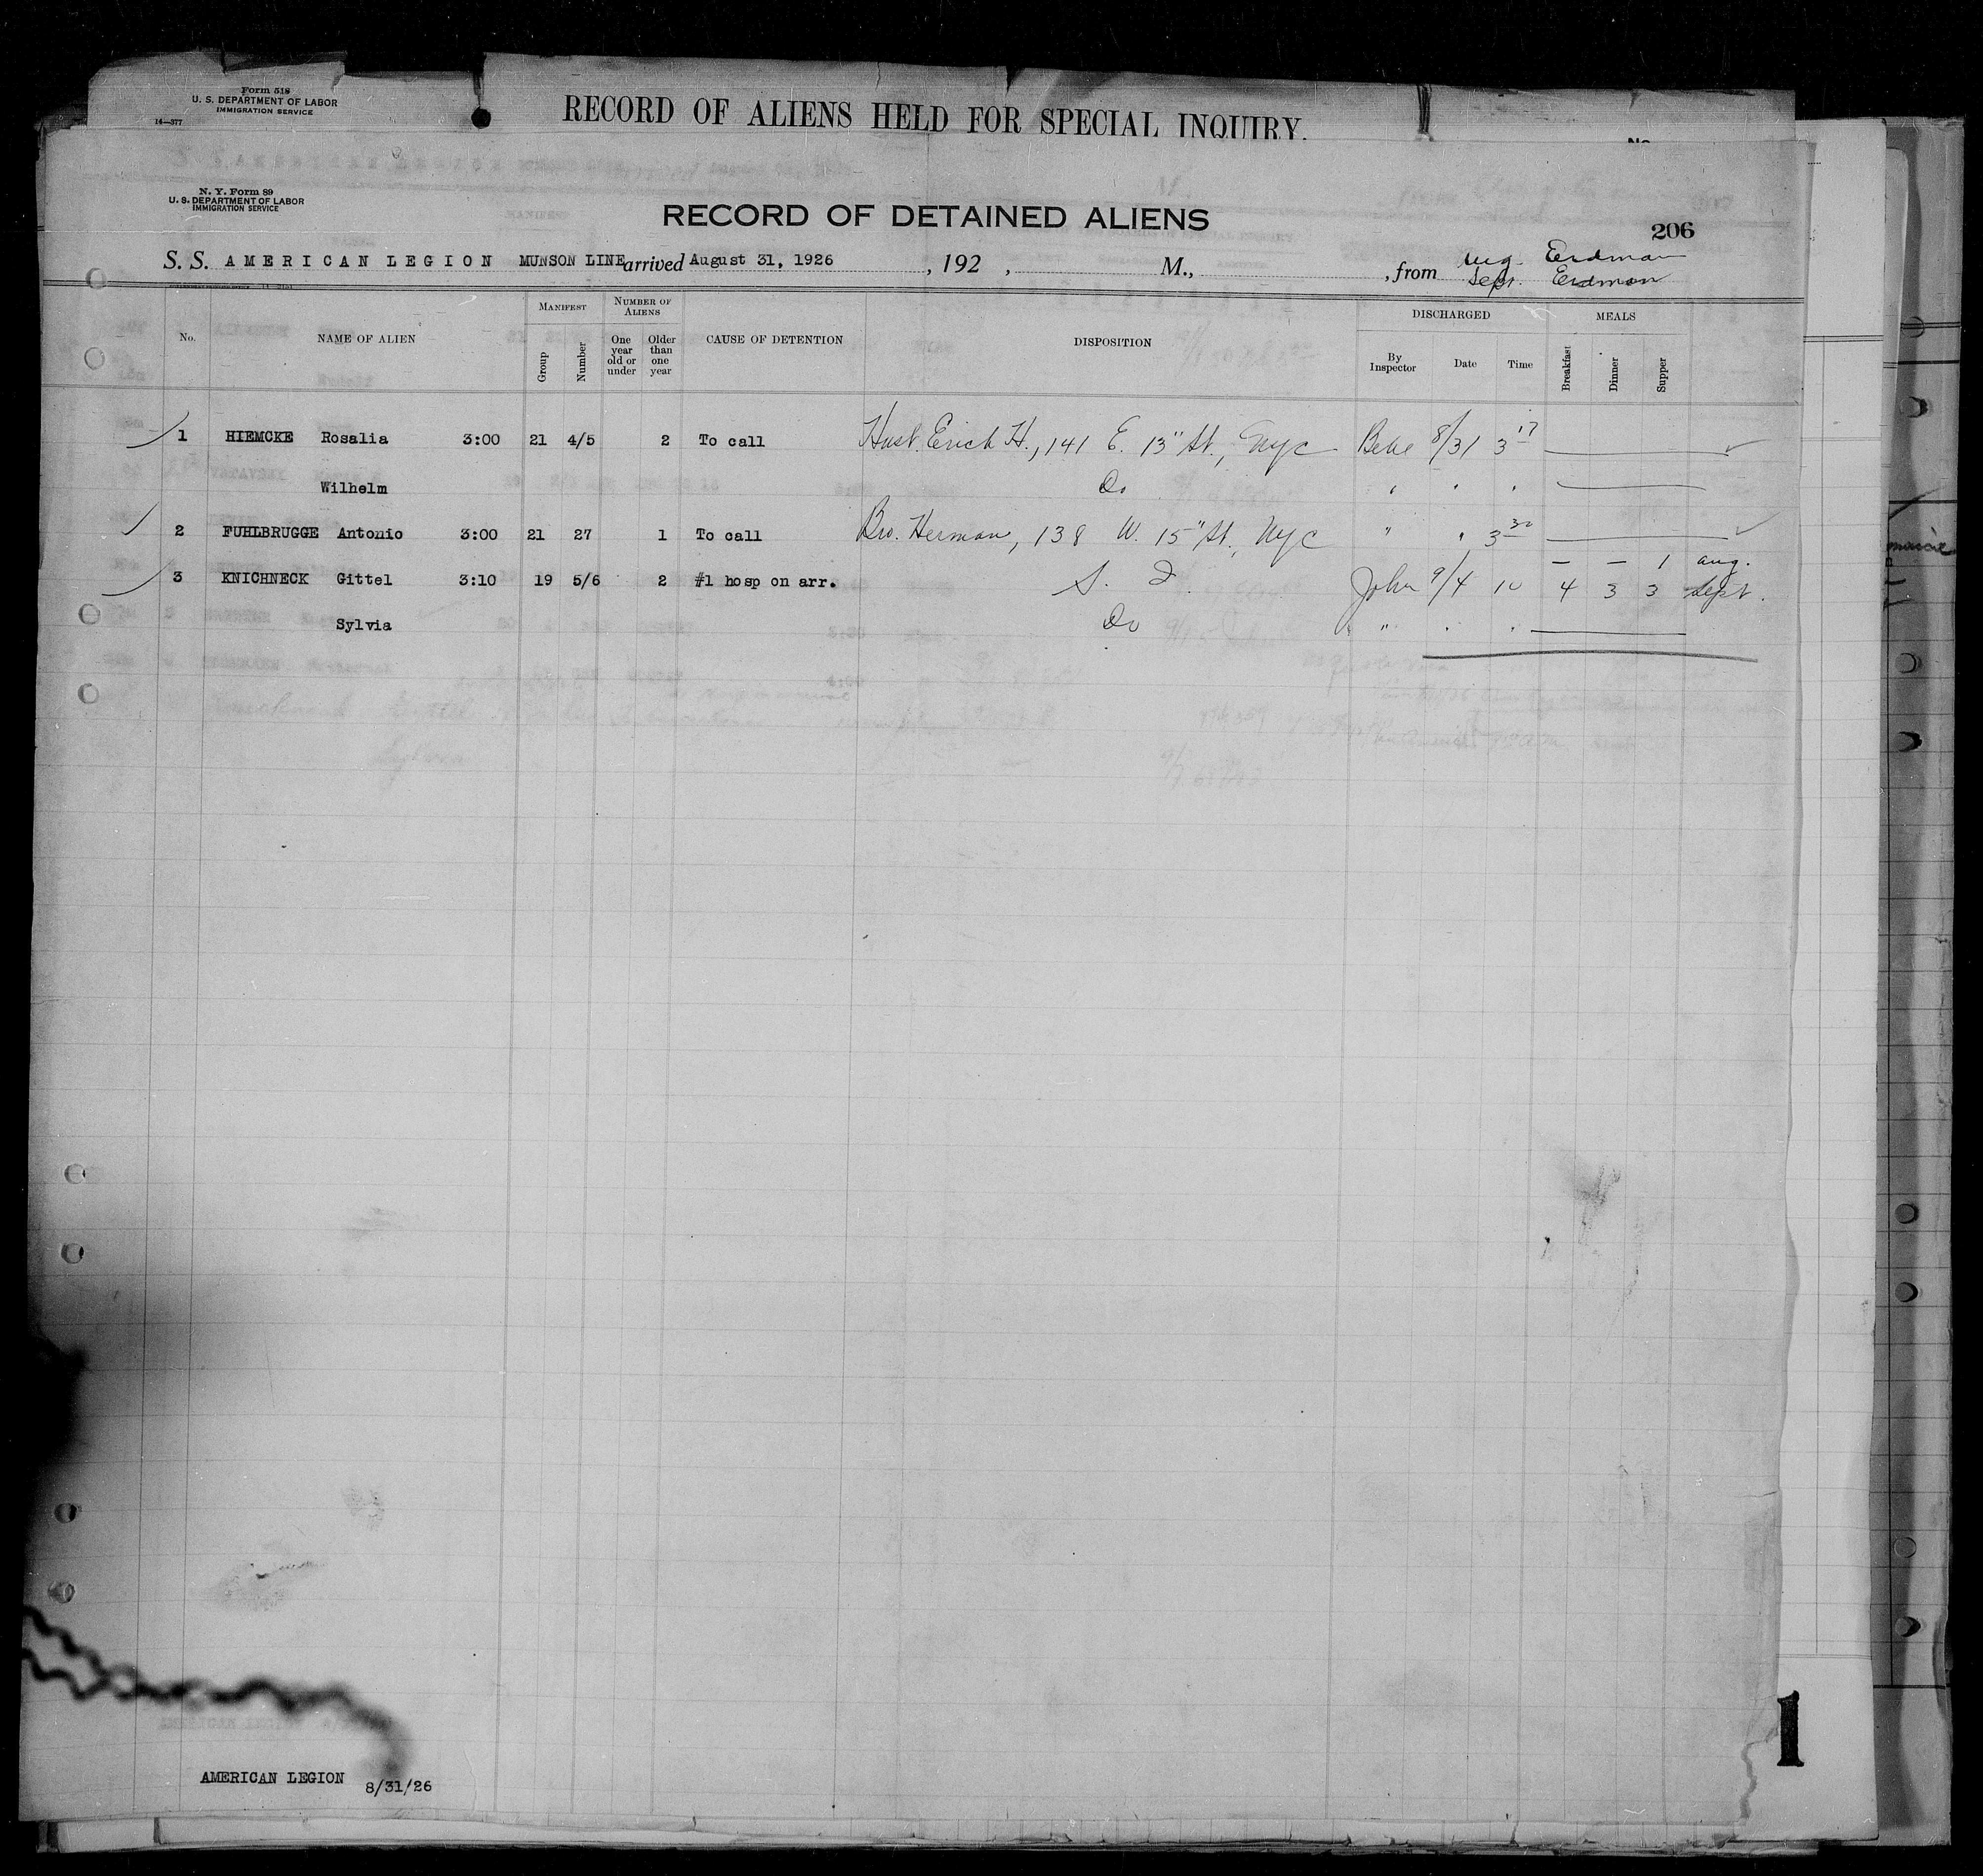 Form 518
U. S. DEPARTMENT OF LABOR
IMMIGRATION SERVICE
14—377
RECORD OF ALIENS HELD FOR SPECIAL INQUIRY.
No.
N. Y. Form 89
U. S. DEPARTMENT OF LABOR
IMMIGRATION SERVICE
RECORD OF DETAINED ALIENS
206
S. S. AMERICAN LEGION MUNSON LINE arrived August 31, 1926 , 192 , M., , from Aug. Erdman
Sept. Erdman
No. NAME OF ALIEN MANIFEST Group Number NUMBER OF ALIENS One year old or under Older than one year CAUSE OF DETENTION DISPOSITION DISCHARGED By Inspector Date Time MEALS Breakfast Dinner Supper
1 HIEMCKE Rosalia 3:00 21 4/5 2 To call Husb. Erich H., 141 E. 13" St., NYC 8/31 3 17
Wilhelm Do " " "
2 FUHLBRUGGE Antonio 3:00 21 27 1 To call Bro. Herman, 138 W. 15" St., NYC " " 3 30
– – 1 Aug.
3 KNICHNECK Gittel 3:10 19 5/6 2 #1 hosp on arr. S. I. John 9/4 10 4 3 3 Sept.
Sylvia Do " " "
AMERICAN LEGION 8/31/26
1